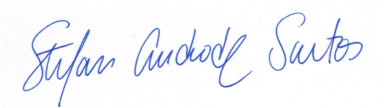 Stefan Andrade Santos